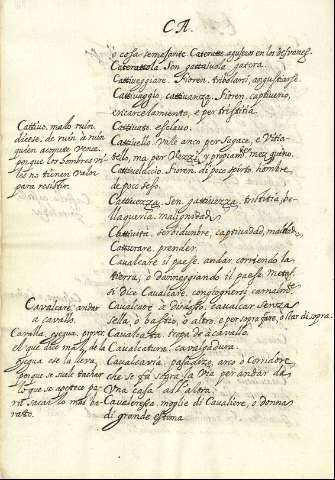 CA.
o cosa semejante Cateratte agujeros en los desvanes.
Caterattola. Sen gattaiuola gatera.
Cattiveggiare. Fioren. tribolarsi, angustiarse.
Cattivaggio, cattivanza. Fioren. captiverio,
encarcelamiento, e per tristitia.
Cattivato. esclavo.
Cattivello vale anco per Sagace, e Vitia-
tello, ma per Vezzi, y propiamte mezquino.
Cattivelluccio. Fioren. di poco spirto, hombre
de poco seso.
Cattivezza, Sen. gattivezza. tristitia, be-
llaqueria malignidad
Cattività. servidumbre, captividad, maldad.
Catturare. prender.
Cavalcare il paese. andar corriendo la
tierra, o danneggiando il paese Metaf.
si dice Cavalcare, congiognersi carnalmte.
Cavalcare a bisdosso, cavalcar senza
sella, o basto, o altro, e per sopra fare, o star di sopra.
Cavalcata, tropa di à cavallo.
Cavalcatura, cavalgadura.
Cavalcavia. passadizo, arco o corridore
che si fà sopra la via per andar da
una casa all'altra.
Cavaleressa, moglie di Cavaliere, o donna
di grande estima
Cattivo, malo ruin
dicese, de ruin à ruin
quien acomete vence
porque los hombres vi-
les no tienen valor
para resistir.
Cavalcare, andar
a cavallo.
Cavalla, yegua,
el que mas de la
yegua ese la lleva,
porque se suele tachar
lo que se apetece pa-
ra sacarlo mas ba-
rato.